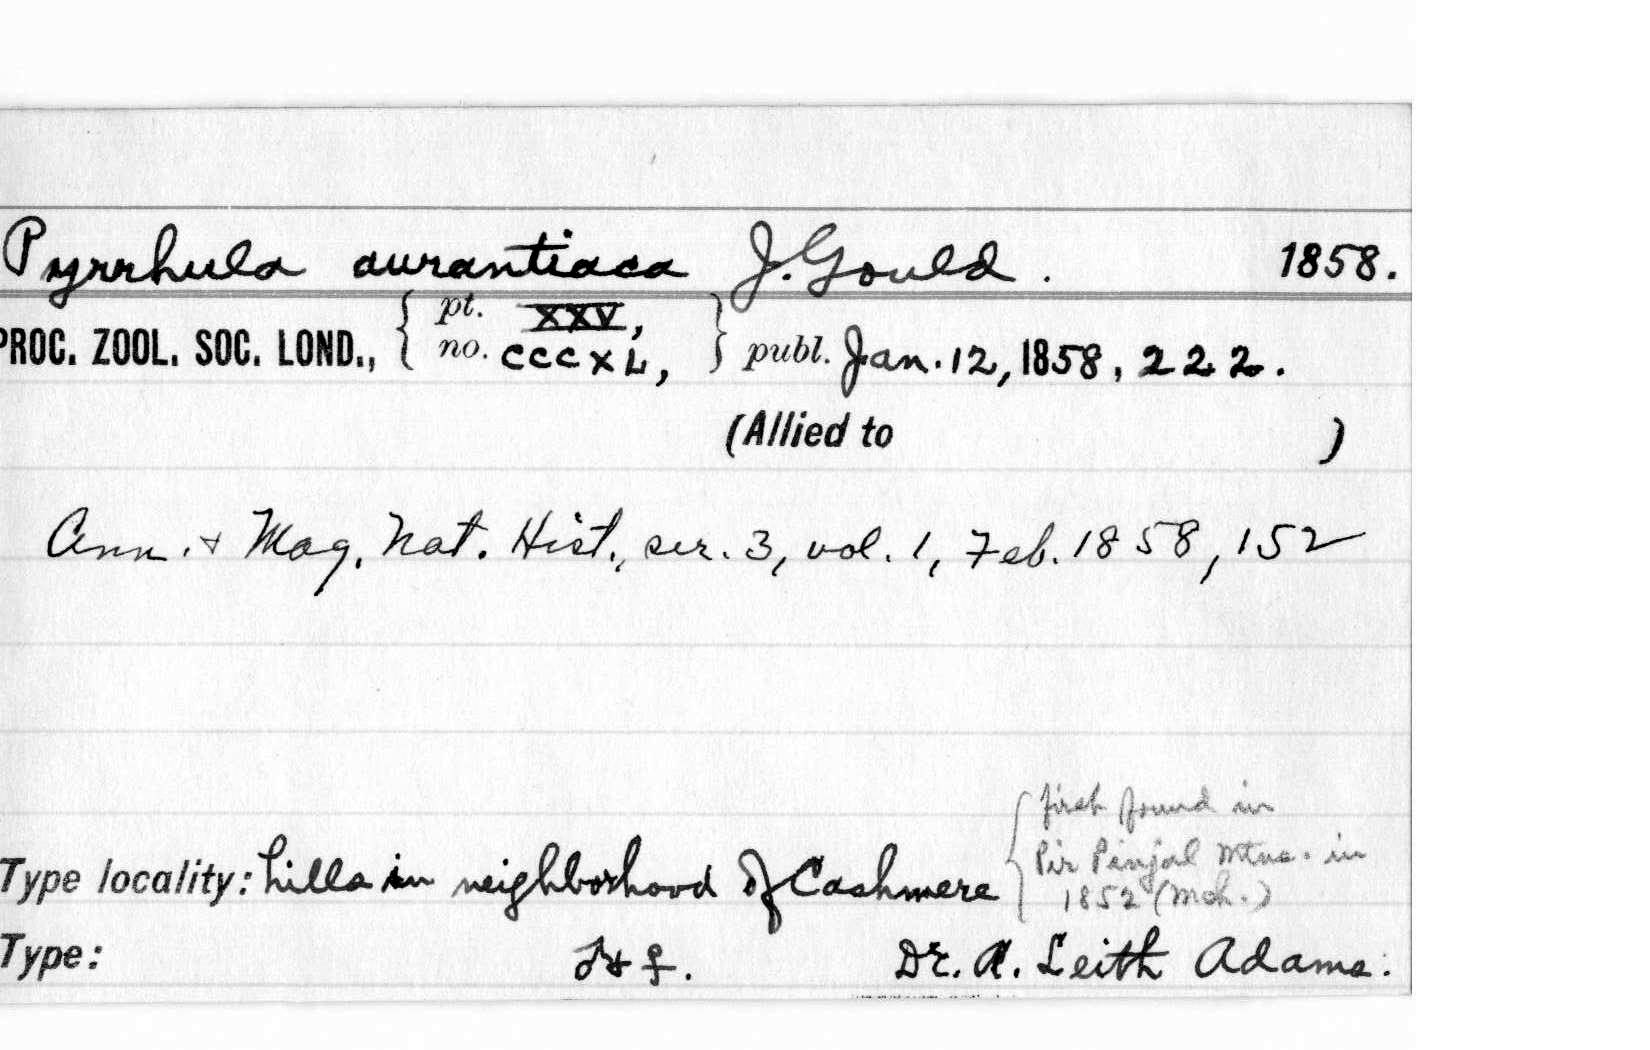 Pyrrhula aurantiaca J. Gould. 1858.
PROC. ZOOL. SOC. LOND., { pt. XXV, no. CCCXL, } publ. Jan. 12, 1858, 222.
(Allied to )
Ann. & Mag. Nat. Hist., ser. 3, vol. 1, Feb. 1858, 152
first found in
Pir Pinjal Mtns. in
1852
Type locality: hills in neighborhood of Cashmere
Type: ♂ & ♀. Dr. A. Leith Adams.